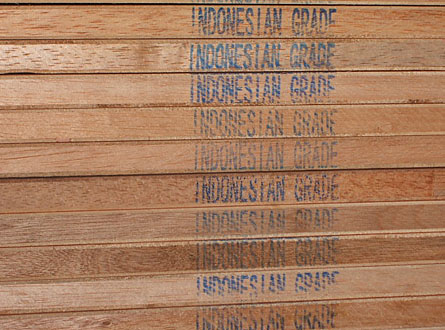 INDONESIAN GRADE
INDONESIAN GRADE
INDONESIAN GRADE
INDONESIAN GRADE
INDONESIAN GRADE
INDONESIAN GRADE
INDONESIAN GRADE
INDONESIAN GRADE
INDONESIAN GRADE
INDONESIAN GRADE